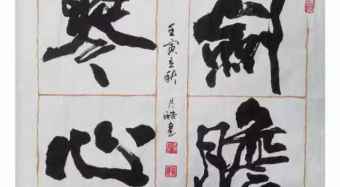 劍膽
琴心
壬寅立秋